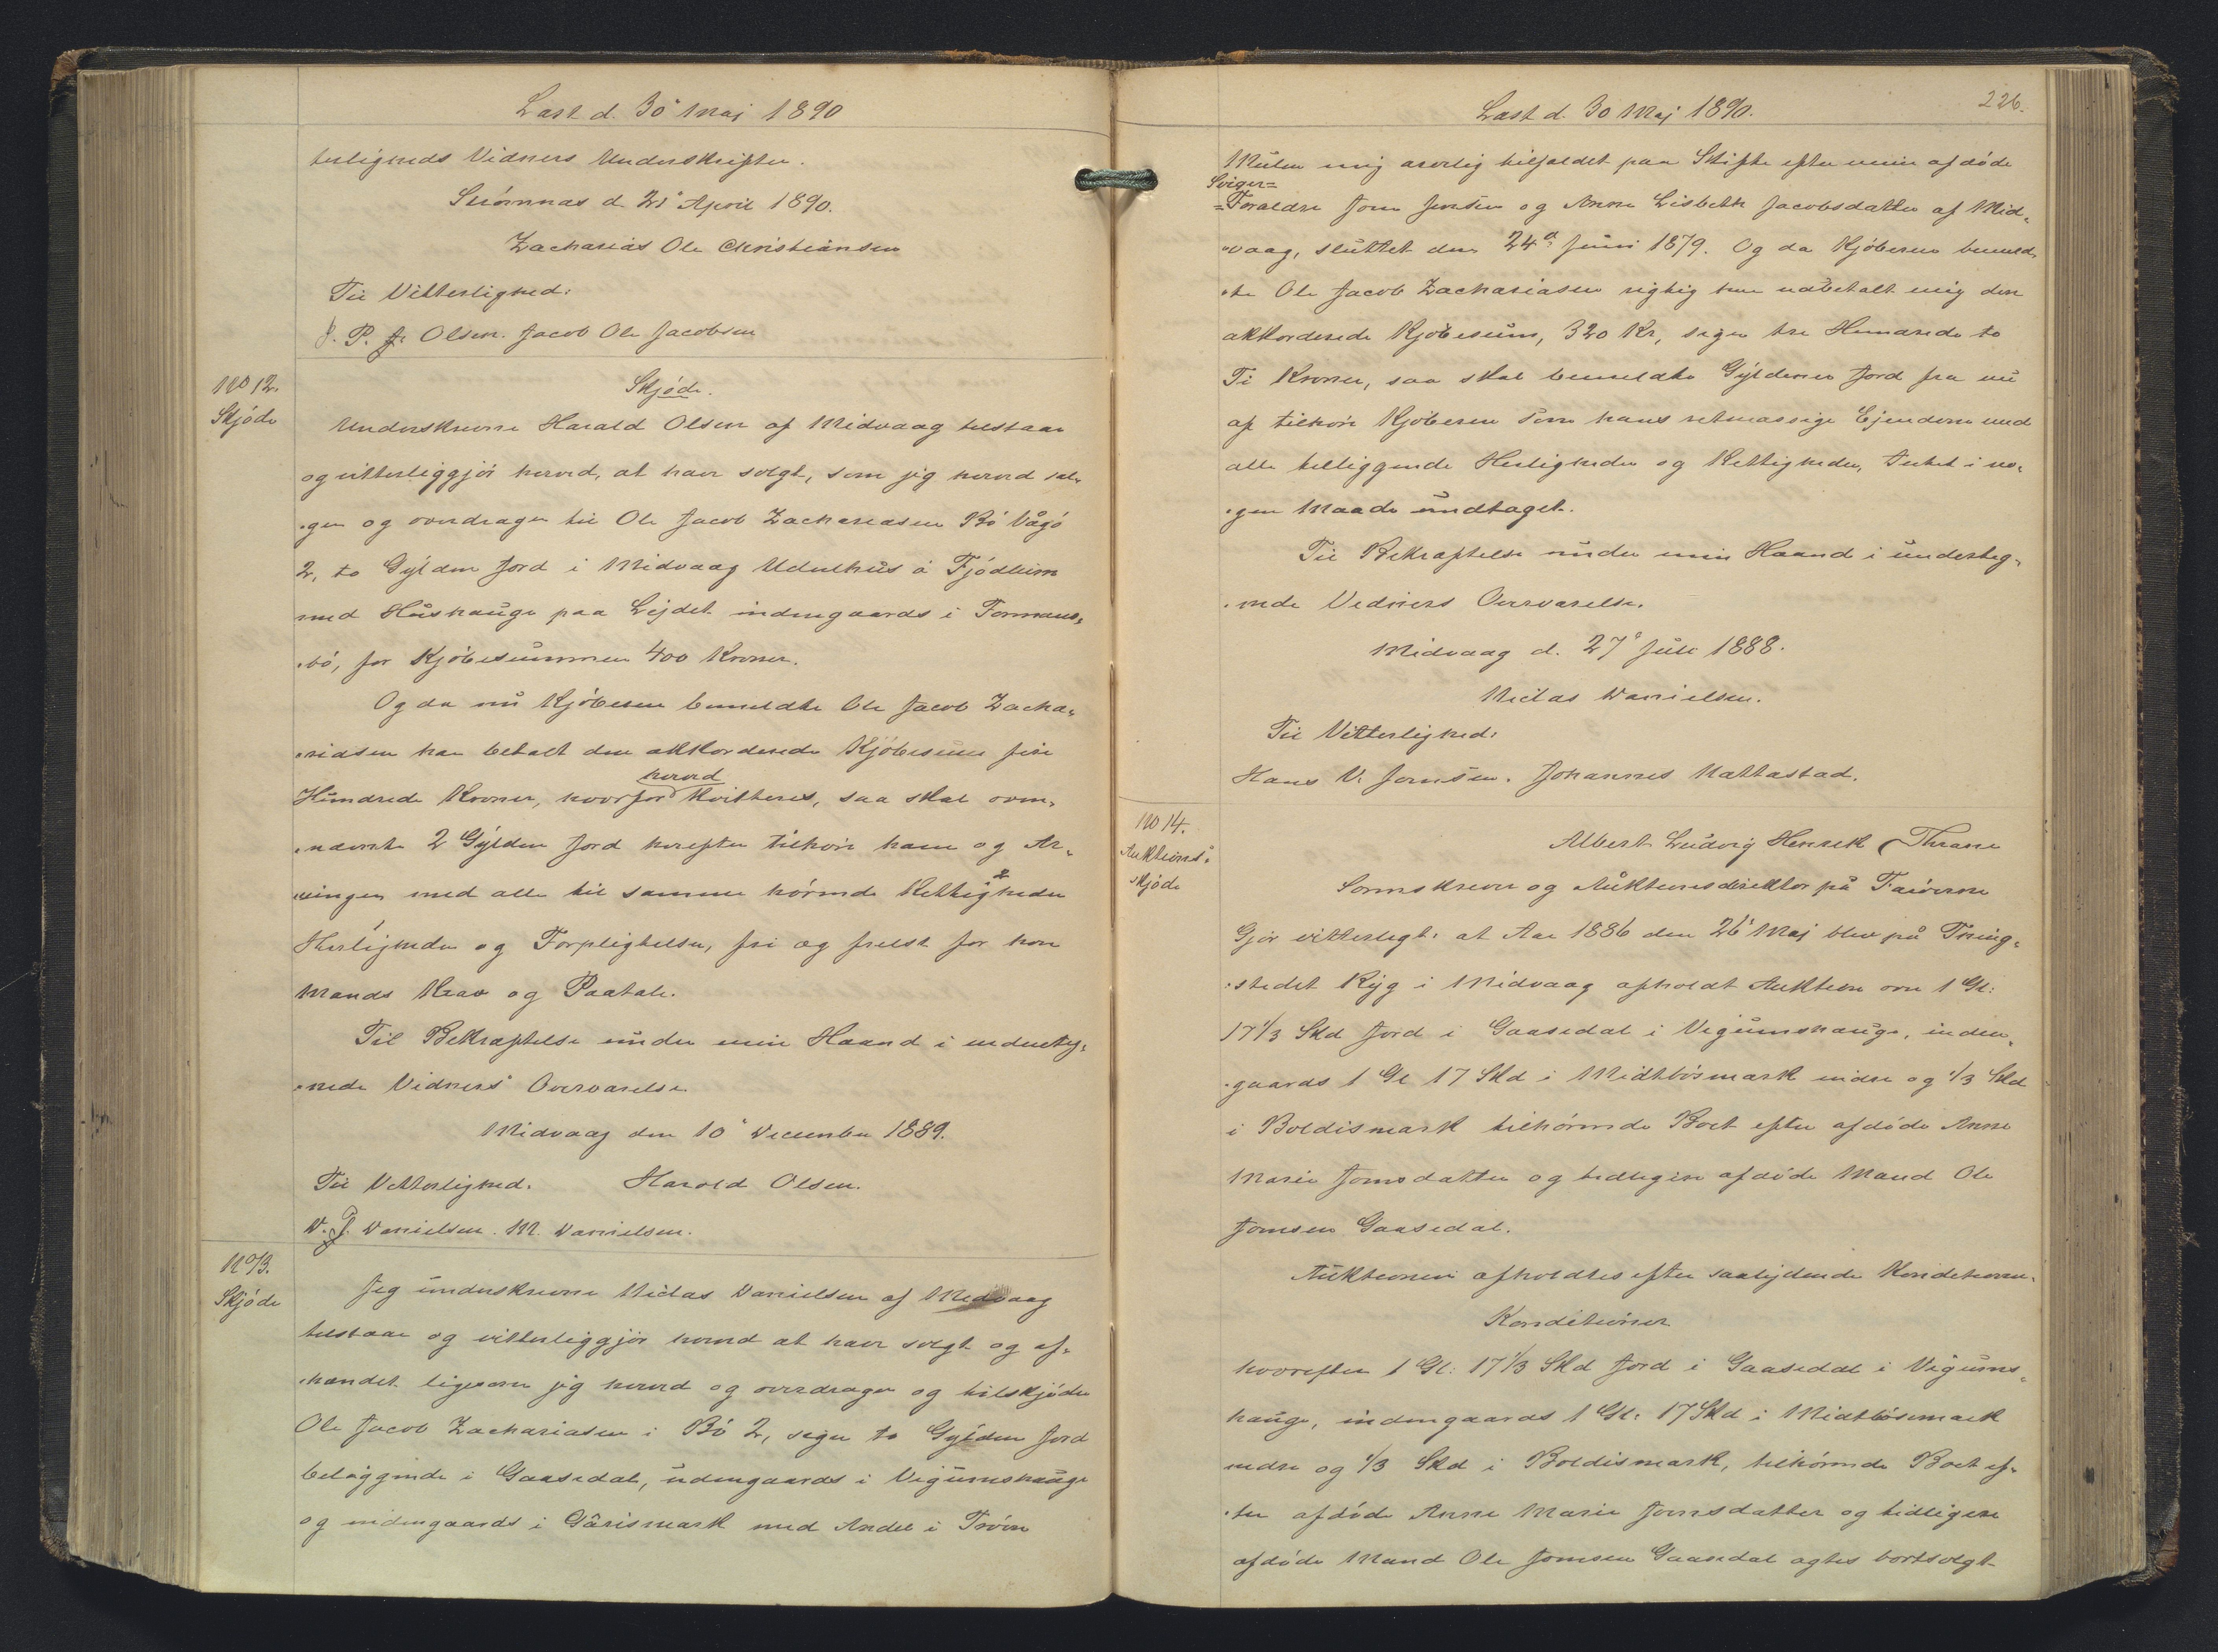 Læst d. 30' Maj 1890
terligheds Vidners Underskrifter.
Strømnæs d. 21' April 1890.
Zacharias Ole Christiansen
Til Vitterlighed:
J. P. J. Olsen. Jacob Ole Jacobsen
No 12.
Skjøde
Skjøde.
Underskrevne Harald Olsen af Midvaag tilstaar
og vitterliggjør herved, at have solgt, som jeg herved sæl-
-ger og overdrager til Ole Jacob Zachariasen Bø Vågø
2, to Gylden Jord i Midvaag Uduthus á Fjødleim
med Hushauge paa Lejdet indengaards i Formans-
-bø, for Kjøbesummen 400 Kroner.
Og da nu Kjøberen bemeldte Ole Jacob Zacha-
-riasen har betalt den akkorderede Kjøbesum fire
Hundrede Kroner, hvorfor herved kvitteres, saa skal oven-
-nævnte 2 Gylden Jord herefter tilhøre ham og Ar-
-vinger med alle til samme hørende Rettigheder
Herligheder og Forpligtelser, fri og frelst for hver
Mands Krav og Paatale.
Til Bekræftelse under min Haand i underteg-
-nede Vidners Overværelse.
Midvaag den 10' December 1889.
Til Vitterlighed. Harald Olsen.
D. J. Danielsen. M. Danielsen.
No 13.
Skjøde
Jeg underskrevne Niclas Danielsen af Midvaag
tilstaar og vitterliggjør herved at have solgt og af-
-hændet ligesom jeg herved og overdrager og tilskjøder
Ole Jacob Zachariasen i Bø 2, siger to Gylden Jord
beliggende i Gaasedal, udengaards i Vigumshauge
og indengaards i Gårismark med Andel i Trøen
226.
Læst d. 30 Maj 1890.
Mulen mig arvelig tilfaldet paa Skifte efter mine afdøde
Sviger=
=Forældre Joen Jensen og Anne Lisbeth Jacobsdatter af Mid-
-vaag, sluttet den 24de Juni 1879. Og da Kjøberen bemeld-
-te Ole Jacob Zachariasen rigtig har udbetalt mig den
akkorderede Kjøbesum, 320 Kr, siger tre Hundrede to
Ti Kroner, saa skal bemeldte Gyldener Jord fra nu
af tilhøre Kjøberen som hans retmæssige Ejendom med
alle tilliggende Herligheder og Rettigheder, Intet i no-
-gen Maade undtaget.
Til Bekræftelse under min Haand i underteg-
-nede Vidners Overværelse.
Midvaag d. 27' Juli 1888.
Niclas Danielsen.
Til Vitterlighed:
Hans V. Joensen. Johannes Nattestad.
No 14.
Auktions-
skjøde
Albert Ludvig Henrik Thrane
Sorenskriver og Auktionsdirektør på Færøerne
Gjør vitterligt: at Aar 1886 den 26' Maj blev på Thing-
-stedet Ryg i Midvaag afholdt Auktion over 1 Gl:
17 1/3 Skd Jord i Gaasedal i Vigumshauge, inden-
-gaards 1 Gl 17 Skd i Midtbøsmark nidre og 1/3 Skd
i Boldismark tilhørende Boet efter afdøde Anne
Marie Joensdatter og tidligere afdøde Mand Ole
Joensen Gaasedal.
Auktionen afholdtes efter saalydende Konditioner.
Konditioner
hvorefter 1 Gl: 17 1/3 Skd Jord i Gaasedal i Vigums-
hauge, indengaards 1 Gl: 17 Skd i Midtbøsmark
nidre og 1/3 Skd i Boldismark, tilhørende Boet ef-
-ter afdøde Anne Marie Joensdatter og tidligere
afdøde Mand Ole Joensen Gaasedal agtes bortsolgt